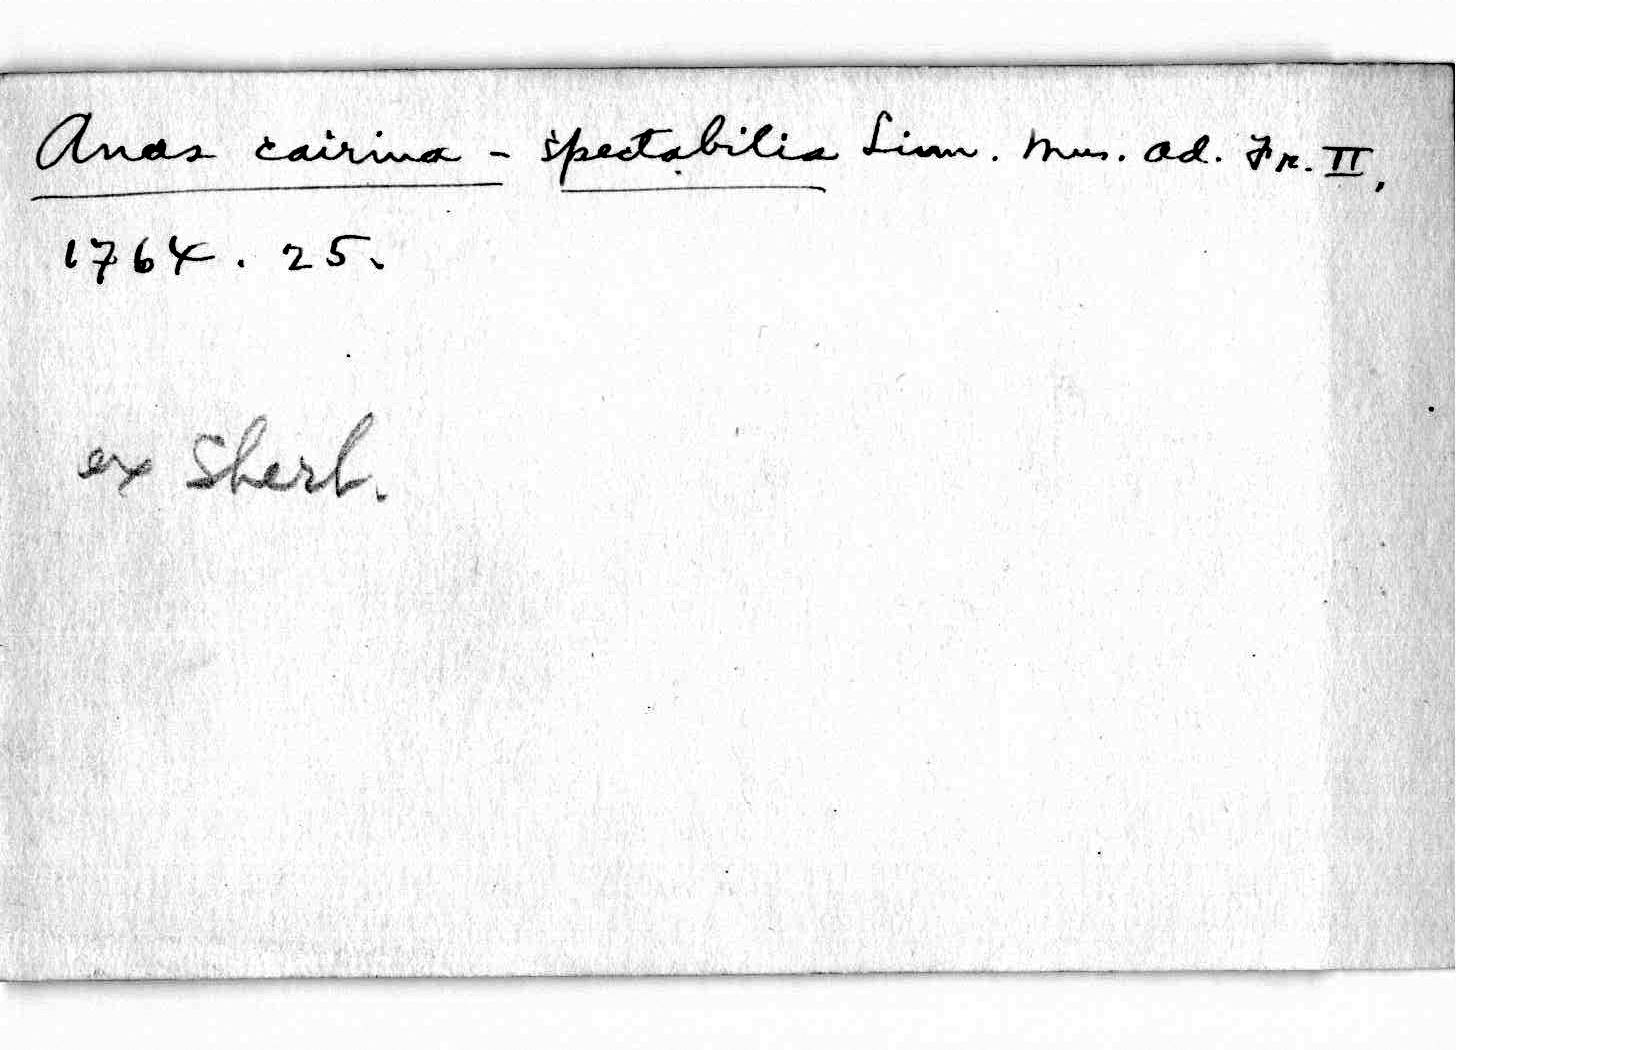 Anas cairina - spectabilia Linn. Mus. Ad. Fr. II,
1764. 25.
ex Sherb.